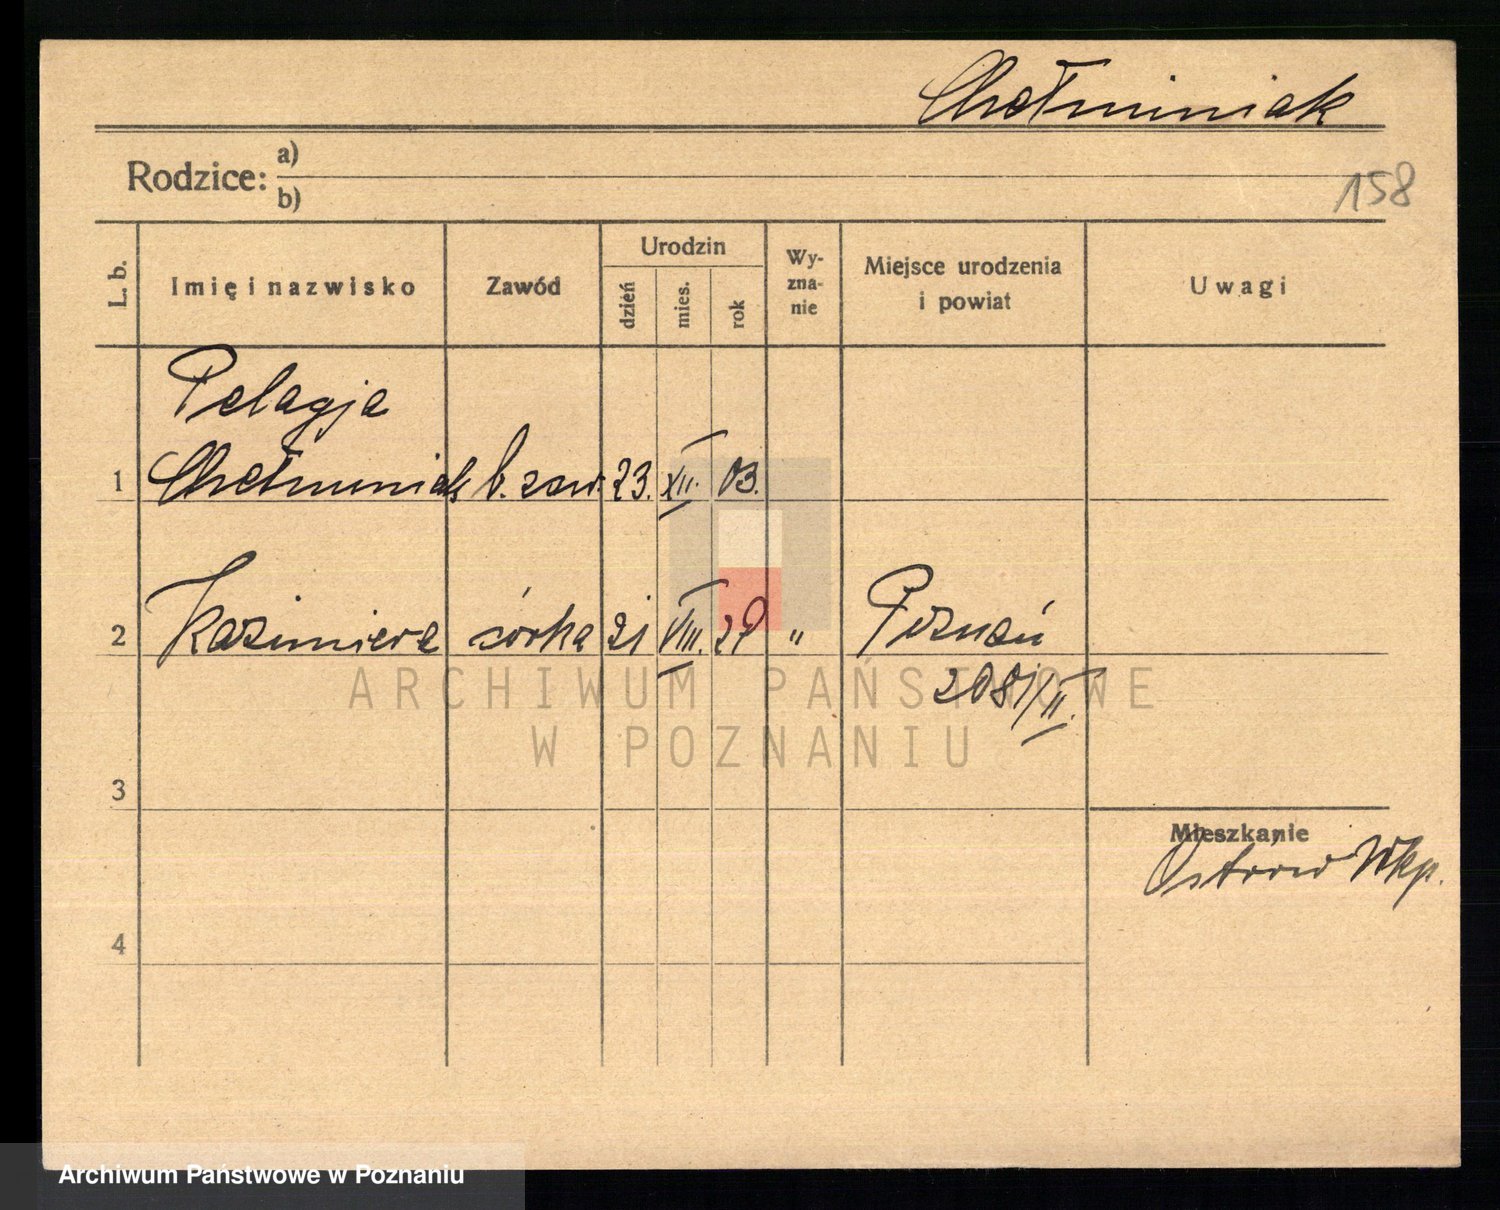 Chełminiak
Rodzice: a)
b)
158
L. b. Imię i nazwisko Zawód Urodzin dzień mies. rok Wyznanie Miejsce urodzenia i powiat Uwagi
Pelagja
1 Chełminiak b. zaw. 23. XII. 03.
2 Kazimiera córka 21 VIII. 29 " Poznań
2081/II.
ARCHIWUM PAŃSTWOWE
W POZNANIU
3
Mieszkanie
Ostrów Wkp.
4
Archiwum Państwowe w Poznaniu